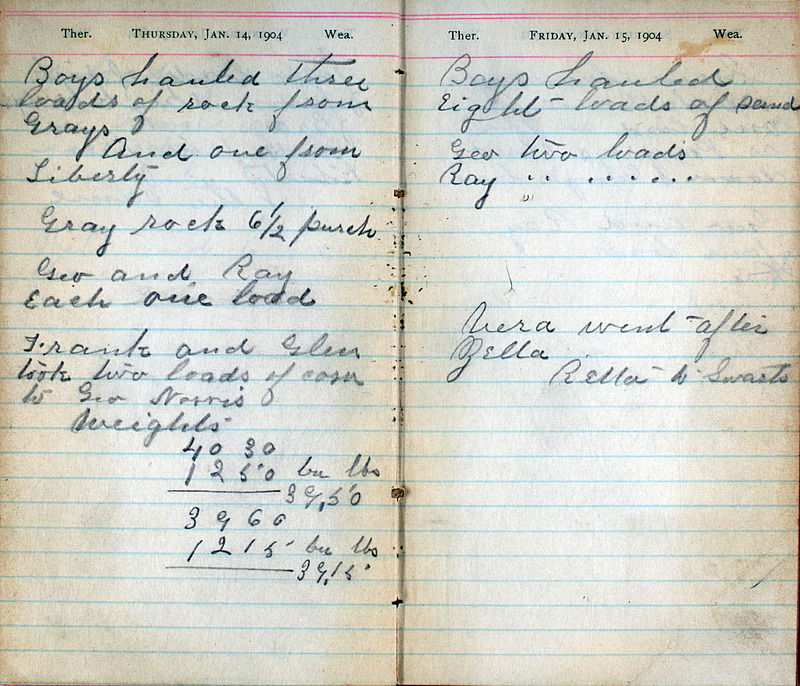 Ther. THURSDAY, JAN. 14, 1904 Wea.
Boys hauled three
loads of rock from
Grays
And one from
Liberty
Gray rock 6 1/2 purch
Geo and Ray
Each one load
Frank and Glen
took two loads of corn
to Geo Norris
Weights
40 30
1250 bu lbs
39,50
3960
1215 bu lbs
39,15
Ther. FRIDAY, JAN. 15, 1904 Wea.
Boys hauled
Eight loads of sand
Geo two loads
Ray " "
Vera went after
Zella
Retta to Swarts